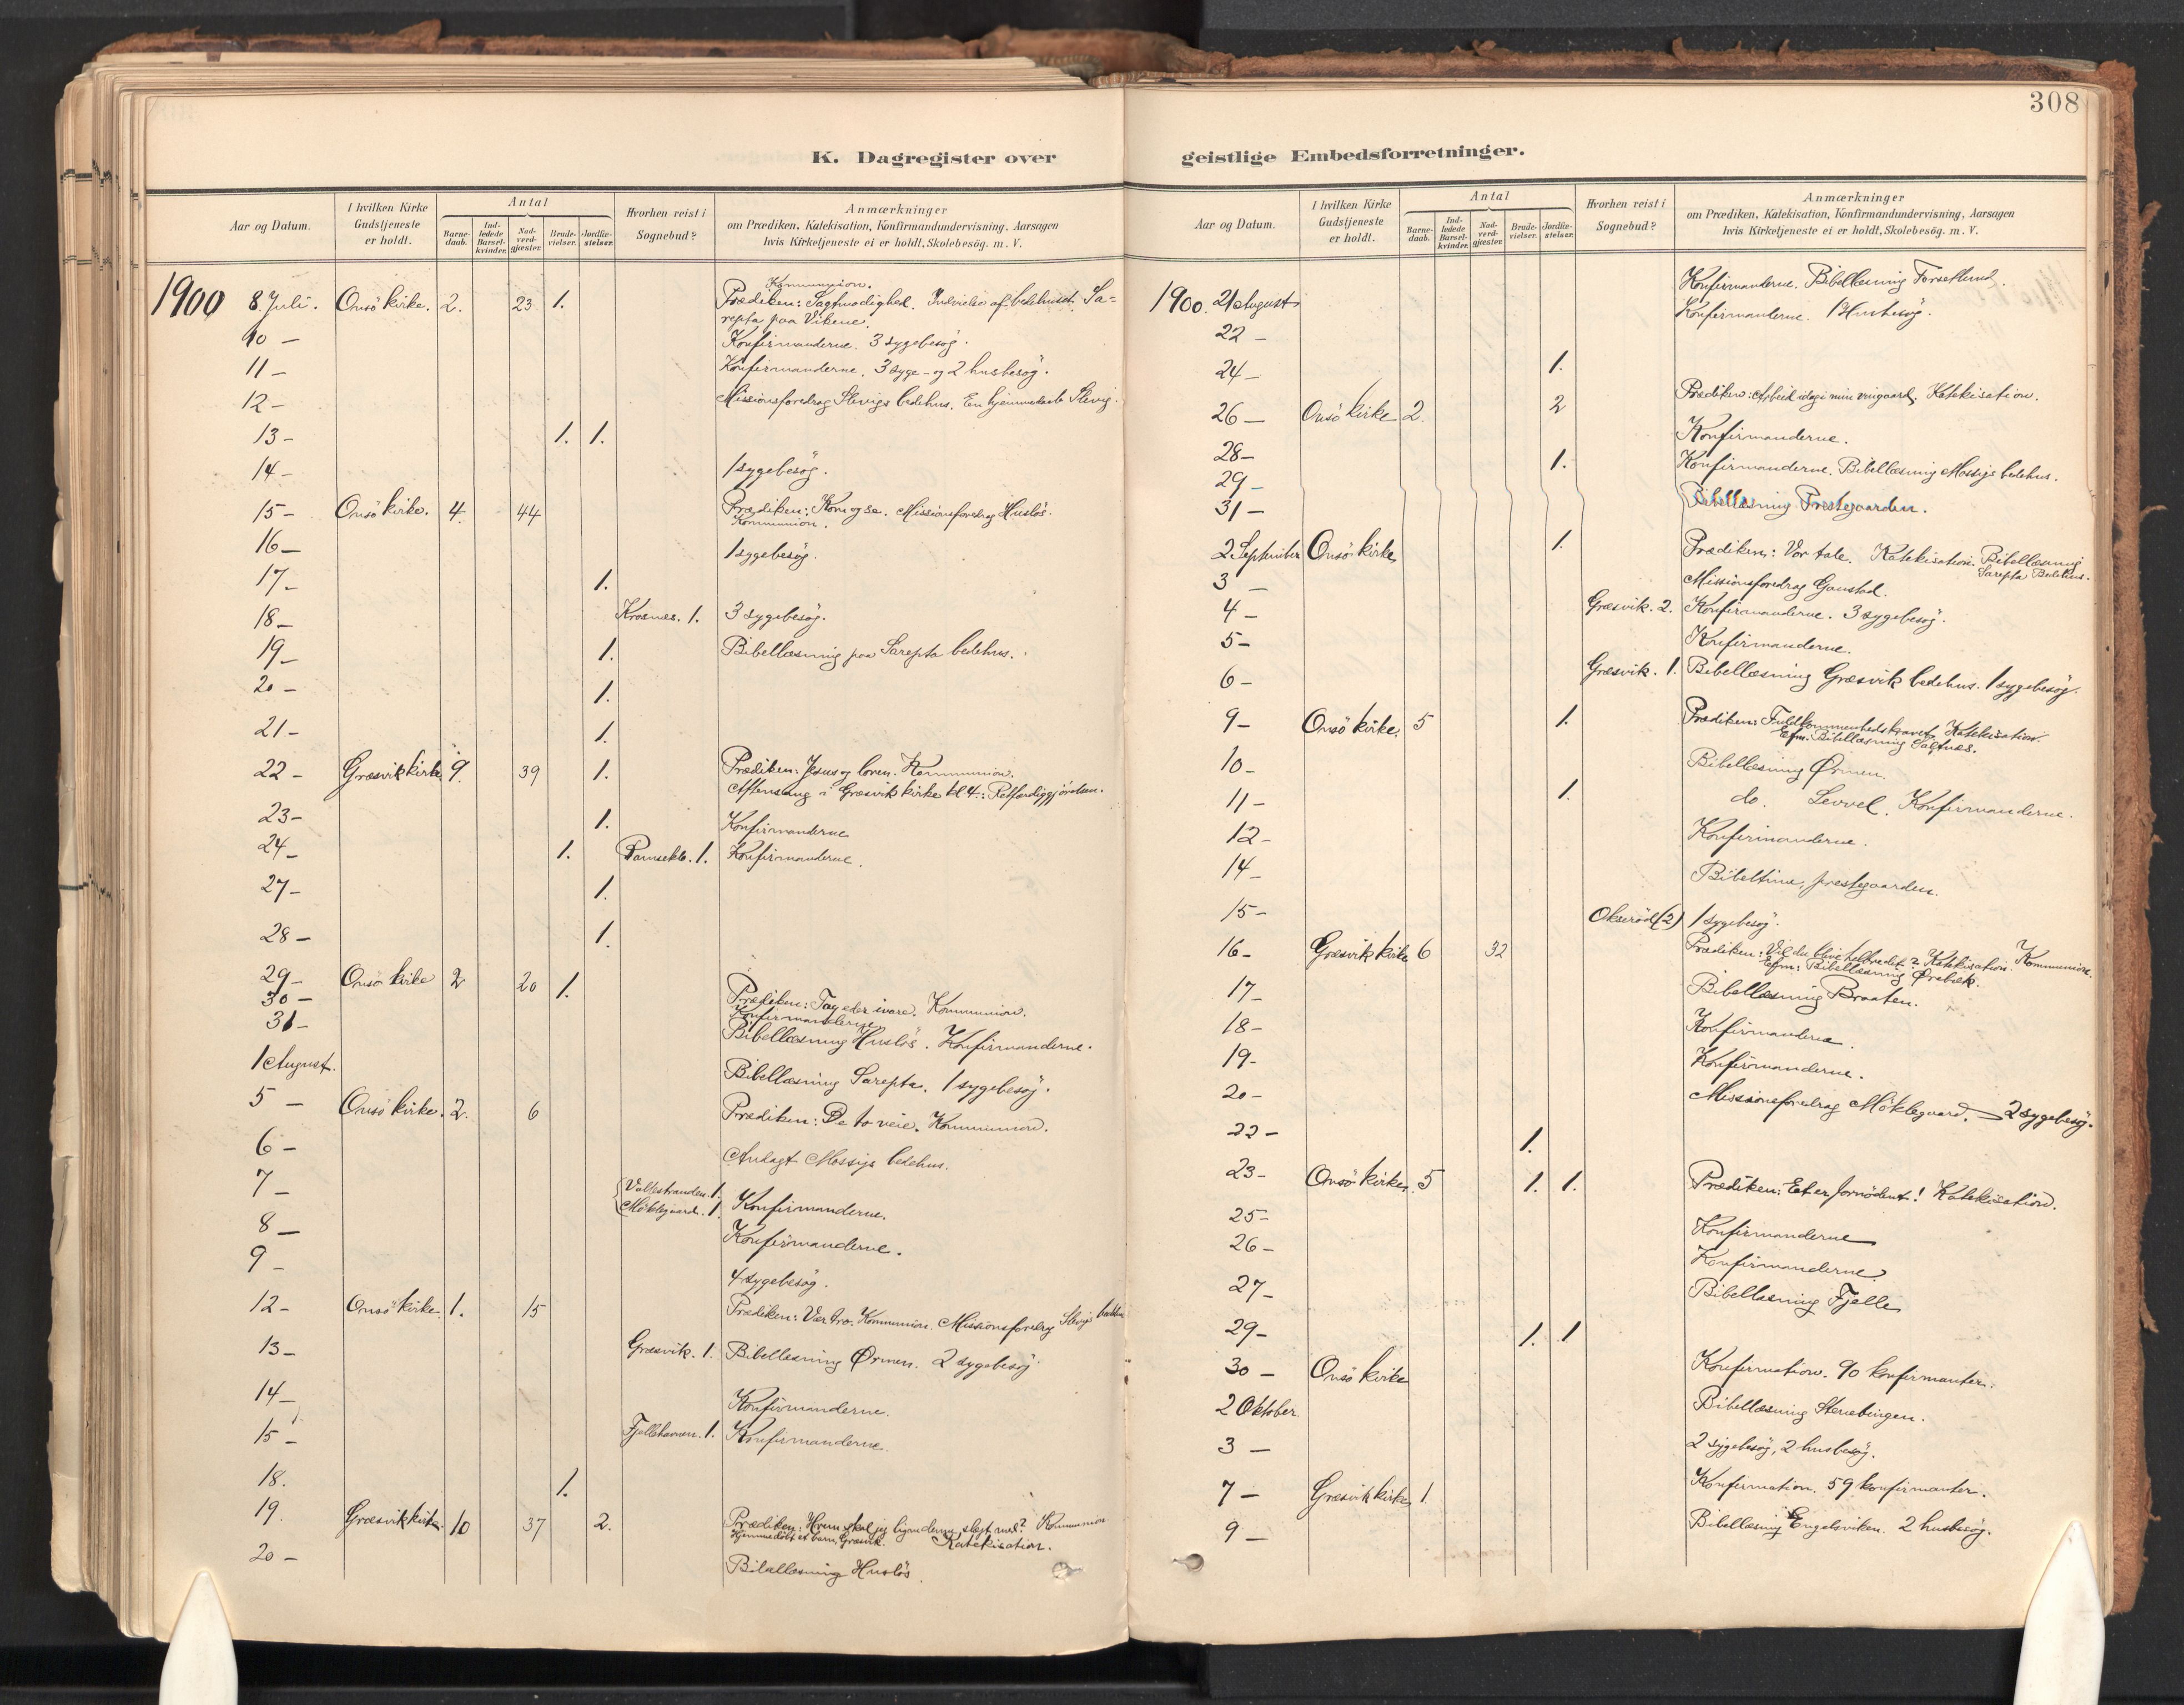 308
K. Dagregister over
Aar og Datum. I hvilken Kirke Gudstjeneste er holdt. Antal Barne-daab. Ind-ledede Barsel-kvinder. Nad-verd-gjæster. Brude-vielser. Jordfæ-stelser. Hvorhen reist i Sognebud? Anmærkninger om Prædiken, Katekisation, Konfirmandundervisning, Aarsagen hvis Kirketjeneste ei er holdt, Skolebesøg. m. V.
Kommunion.
1900 8. Juli. Onsö kirke. 2. 23 1. Prædiken: Sagtmodighed. Indvielse af bedehuset Sa-
repta paa Vikene.
10 – Konfirmanderne. 3 sygebesøg.
11 – Konfirmanderne. 3 syge- og 2 husbesøg.
12 – Missionsforedrag Slevigs bedehus. En hjemmedaab Slevig.
13 – 1. 1.
14 – 1 sygebesøg.
15 – Onsö kirke. 4. 44 Prædiken: Kom og se. Missionsforedrag Husløs.
Kommunion.
16 – 1 sygebesøg.
17 – 1.
18 – Krosnes. 1. 3 sygebesøg.
19 – 1. Bibellæsning paa Sarepta bedehus.
20 – 1.
21 – 1.
22 – Græsvik kirke 9. 39 1. Prædiken: Jesus og loven. Kommunion.
Aftensang i Græsvik kirke kl 4: Retfærdiggjørelsen.
23 – 1. Konfirmanderne
24 – 1. 1. Konfirmanderne.
27 – 1.
28 – 1.
29 – Onsö kirke 2 20 1. Prædiken: Tag eder ivare. Kommunion.
30 – Konfirmanderne
31 – Bibellæsning Husløs. Konfirmanderne.
1 August. Bibellæsning Sarepta. 1 sygebesøg.
5 – Onsö kirke. 2. 6 Prædiken: De to veie. Kommunion.
6 – Andagt Mossigs bedehus.
7 – Vallestranden. 1. Møklegaard. 1. Konfirmanderne.
8 – Konfirmanderne.
9 – 4 sygebesøg.
12 – Onsö kirke. 1. 15 Prædiken: Vær tro. Kommunion. Missionsforedrag Slevigs bedehus
13 – Græsvik. 1. Bibellæsning Ørmen. 2 sygebesøg.
14 – Konfirmanderne.
15 – Fjellehavnen. 1. Konfirmanderne.
18. 1.
19. Græsvik kirke. 10 37 2. Prædiken: Hvem skal jeg ligne denne slegt med? Kommunion
Hjemmedøbt et barn, Græsvik. Katekisation.
20 – Bibellæsning Husløs.
geistlige Embedsforretninger.
Aar og Datum. I hvilken Kirke Gudstjeneste er holdt. Antal Barne-daab. Ind-ledede Barsel-kvinder. Nad-verd-gjæster. Brude-vielser. Jordfæ-stelser. Hvorhen reist i Sognebud? Anmærkninger om Prædiken, Katekisation, Konfirmandundervisning, Aarsagen hvis Kirketjeneste ei er holdt, Skolebesøg. m. V.
1900. 21 August Konfirmanderne. Bibellæsning Torseklund.
22 – Konfirmanderne. 1 Husbesøg.
24 – 1.
26 – Onsö kirke 2. 2 Prædiken: Arbeid idag i min vingaard. Katekisation.
28 – Konfirmanderne.
29 – 1. Konfirmanderne. Bibellæsning Mossigs bedehus.
31 – Bibellæsning Prestegaarden.
2 September Onsö kirke 1. Prædiken: Vor tale. Katekisation. Bibellæsning
Sarepta Bedehus.
3 – Missionsforedrag Gaustad.
4 – Græsvik. 2. Konfirmanderne. 3 sygebesøg.
5 – Konfirmanderne.
6 – Græsvik. 1. Bibellæsning Græsvik bedehus. 1 sygebesøg.
9 – Onsö kirke. 5 1. Prædiken: Fuldkommenhedskravet. Katekisation.
Efm: Bibellæsning Saltnes.
10 – Bibellæsning Ørmen.
11 – 1. do. Levvel. Konfirmanderne.
12 – Konfirmanderne.
14 – Bibeltime, prestegaarden.
15 – Okserød (2) 1 sygebesøg.
16 – Græsvik kirke 6 32 Prædiken: Vil du blive helbredet? Katekisation. Kommunion.
Efm: Bibellæsning Ørebæk.
17 – Bibellæsning Braaten.
18 – Konfirmanderne.
19 – Konfirmanderne.
20 – Missionsforedrag Møklegaard. 2 sygebesøg.
22 – 1.
23 – Onsö kirke. 5 1. 1. Prædiken: Et er fornødent! Katekisation.
25 – Konfirmanderne
26 – Konfirmanderne
27 – Bibellæsning Fjelle
29 – 1. 1
30 – Onsö kirke Konfirmation. 90 konfirmanter.
2 Oktober. Bibellæsning Stenebingen.
3 – 2 sygebesøg, 2 husbesøg.
7 – Græsvik kirke 1. Konfirmation. 59 konfirmanter.
9 – Bibellæsning Engelsviken. 2 husbesøg.